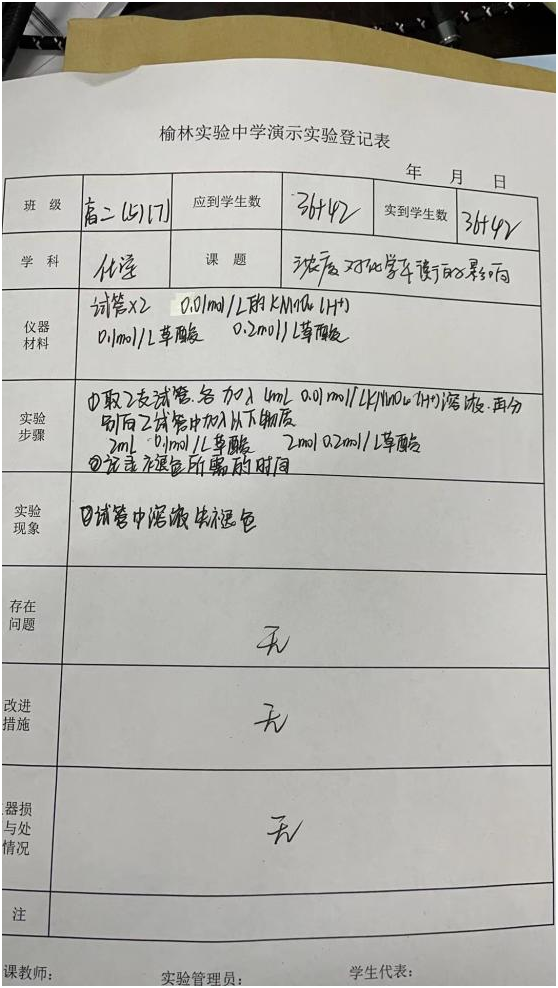 榆林实验中学演示实验登记表
年 月 日
班 级 高二(5)(7) 应到学生数 36+42 实到学生数 36+42
学 科 化学 课 题 浓度对化学平衡的影响
仪器
材料
试管×2 0.01mol/L的KMnO4(H+)
0.1mol/L草酸 0.2mol/L草酸
实验
步骤
①取2支试管.各加入4mL 0.01mol/LKMnO4(H+)溶液.再分
别向2试管中加入以下物质
2mL 0.1mol/L草酸 2mol 0.2mol/L草酸
②记录褪色所需的时间
实验
现象
②试管中溶液先褪色
存在
问题
无
改进
措施
无
器损
与处
情况
无
注
课教师: 实验管理员: 学生代表: